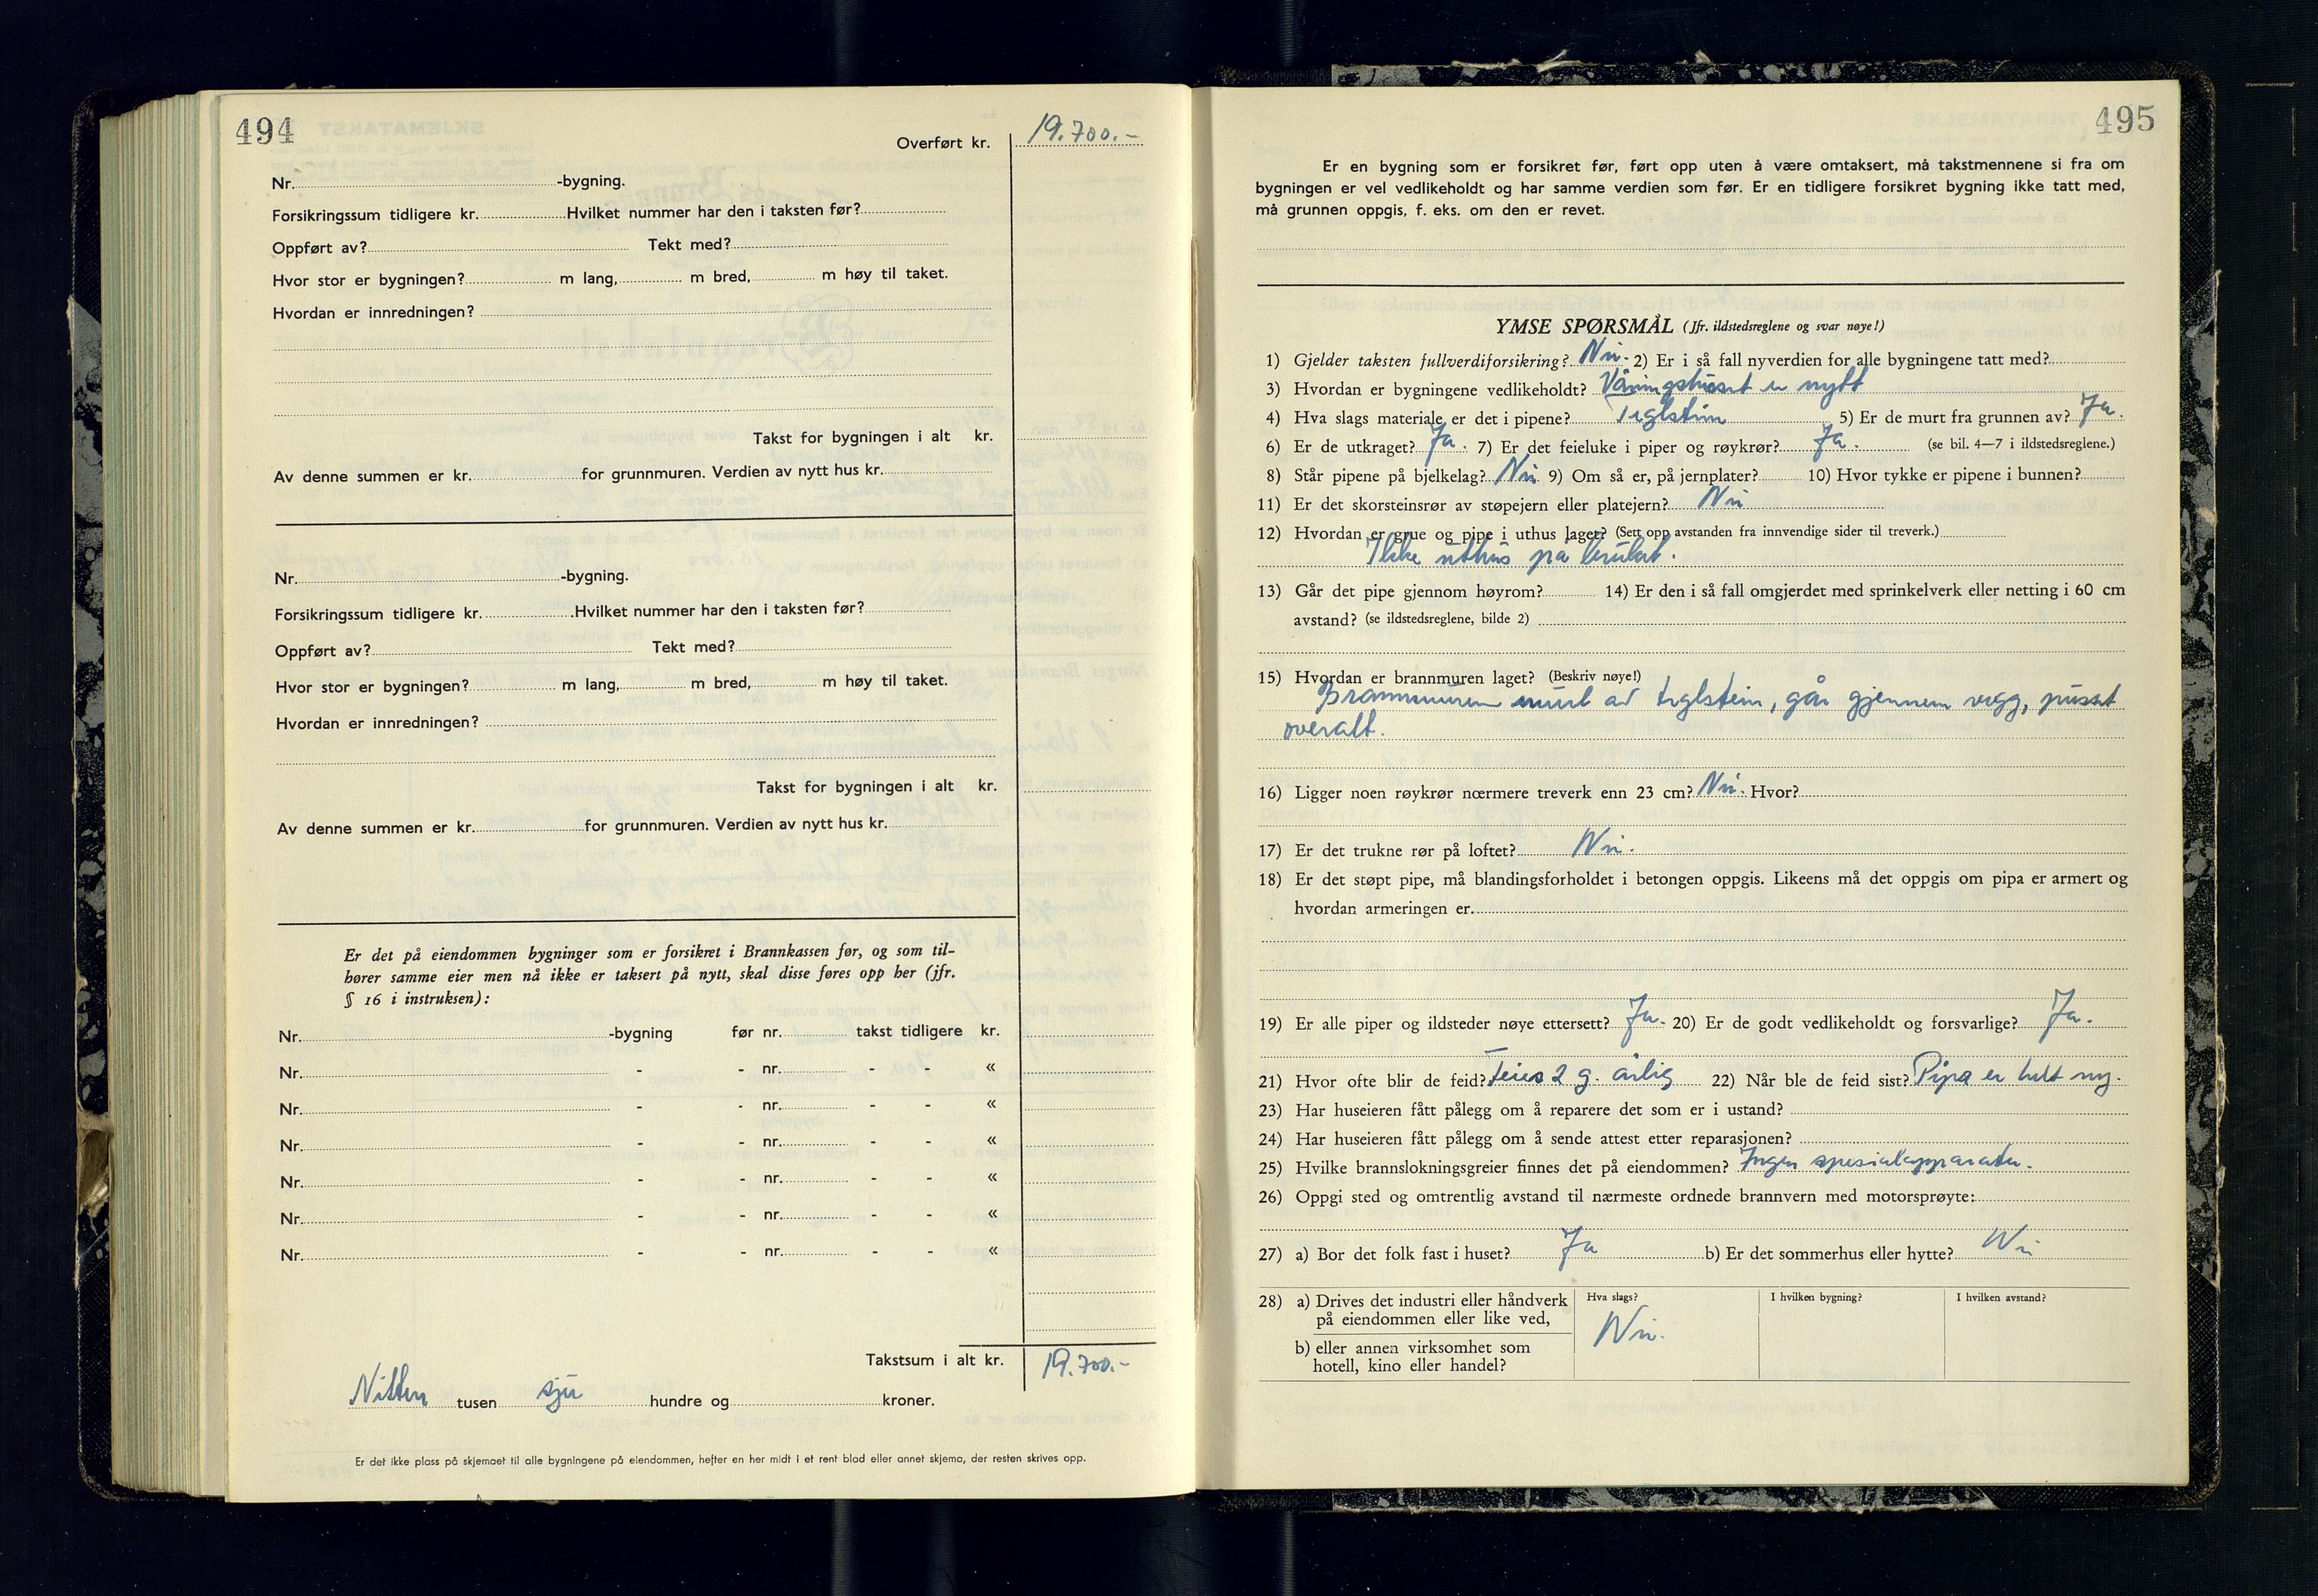 494
Overført kr. 19.700.-
Nr. -bygning.
Forsikringssum tidligere kr. Hvilket nummer har den i taksten før?
Oppført av? Tekt med?
Hvor stor er bygningen? m lang, m bred, m høy til taket.
Hvordan er innredningen?
Takst for bygningen i alt kr.
Av denne summen er kr. for grunnmuren. Verdien av nytt hus kr.
Nr. -bygning.
Forsikringssum tidligere kr. Hvilket nummer har den i taksten før?
Oppført av? Tekt med?
Hvor stor er bygningen? m lang, m bred, m høy til taket.
Hvordan er innredningen?
Takst for bygningen i alt kr.
Av denne summen er kr. for grunnmuren. Verdien av nytt hus kr.
Er det på eiendommen bygninger som er forsikret i Brannkassen før, og som til-
hører samme eier men nå ikke er taksert på nytt, skal disse føres opp her (jfr.
§ 16 i instruksen):
Nr. -bygning før nr. takst tidligere kr.
Nr. - - nr. - - «
Nr. - - nr. - - «
Nr. - - nr. - - «
Nr. - - nr. - - «
Nr. - - nr. - - «
Nr. - - nr. - - «
Takstsum i alt kr. 19.700.-
Nitten tusen sju hundre og kroner.
Er det ikke plass på skjemaet til alle bygningene på eiendommen, hefter en her midt i et rent blad eller annet skjema, der resten skrives opp.
495
Er en bygning som er forsikret før, ført opp uten å være omtaksert, må takstmennene si fra om
bygningen er vel vedlikeholdt og har samme verdien som før. Er en tidligere forsikret bygning ikke tatt med,
må grunnen oppgis, f. eks. om den er revet.
YMSE SPØRSMÅL (Jfr. ildstedsreglene og svar nøye!)
1) Gjelder taksten fullverdiforsikring? Nei. 2) Er i så fall nyverdien for alle bygningene tatt med?
3) Hvordan er bygningene vedlikeholdt? Våningshuset er nytt
4) Hva slags materiale er det i pipene? Teglstein 5) Er de murt fra grunnen av? Ja.
6) Er de utkraget? Ja. 7) Er det feieluke i piper og røykrør? Ja. (se bil. 4—7 i ildstedsreglene.)
8) Står pipene på bjelkelag? Nei 9) Om så er, på jernplater? 10) Hvor tykke er pipene i bunnen?
11) Er det skorsteinsrør av støpejern eller platejern? Nei
12) Hvordan er grue og pipe i uthus laget? (Sett opp avstanden fra innvendige sider til treverk.)
Ikke uthus på bruket.
13) Går det pipe gjennom høyrom? 14) Er den i så fall omgjerdet med sprinkelverk eller netting i 60 cm
avstand? (se ildstedsreglene, bilde 2)
15) Hvordan er brannmuren laget? (Beskriv nøye!)
Brannmuren murt av teglstein, går gjennem vegg, pusset
overalt.
16) Ligger noen røykrør nærmere treverk enn 23 cm? Nei. Hvor?
17) Er det trukne rør på loftet? Nei.
18) Er det støpt pipe, må blandingsforholdet i betongen oppgis. Likeens må det oppgis om pipa er armert og
hvordan armeringen er.
19) Er alle piper og ildsteder nøye ettersett? Ja. 20) Er de godt vedlikeholdt og forsvarlige? Ja.
21) Hvor ofte blir de feid? Feies 2 g. årlig 22) Når ble de feid sist? Pipa er helt ny.
23) Har huseieren fått pålegg om å reparere det som er i ustand?
24) Har huseieren fått pålegg om å sende attest etter reparasjonen?
25) Hvilke brannslokningsgreier finnes det på eiendommen? Ingen spesialapparater.
26) Oppgi sted og omtrentlig avstand til nærmeste ordnede brannvern med motorsprøyte:
27) a) Bor det folk fast i huset? Ja b) Er det sommerhus eller hytte? Nei
28) a) Drives det industri eller håndverk Hva slags? I hvilken bygning? I hvilken avstand?
på eiendommen eller like ved, Nei.
b) eller annen virksomhet som
hotell, kino eller handel?